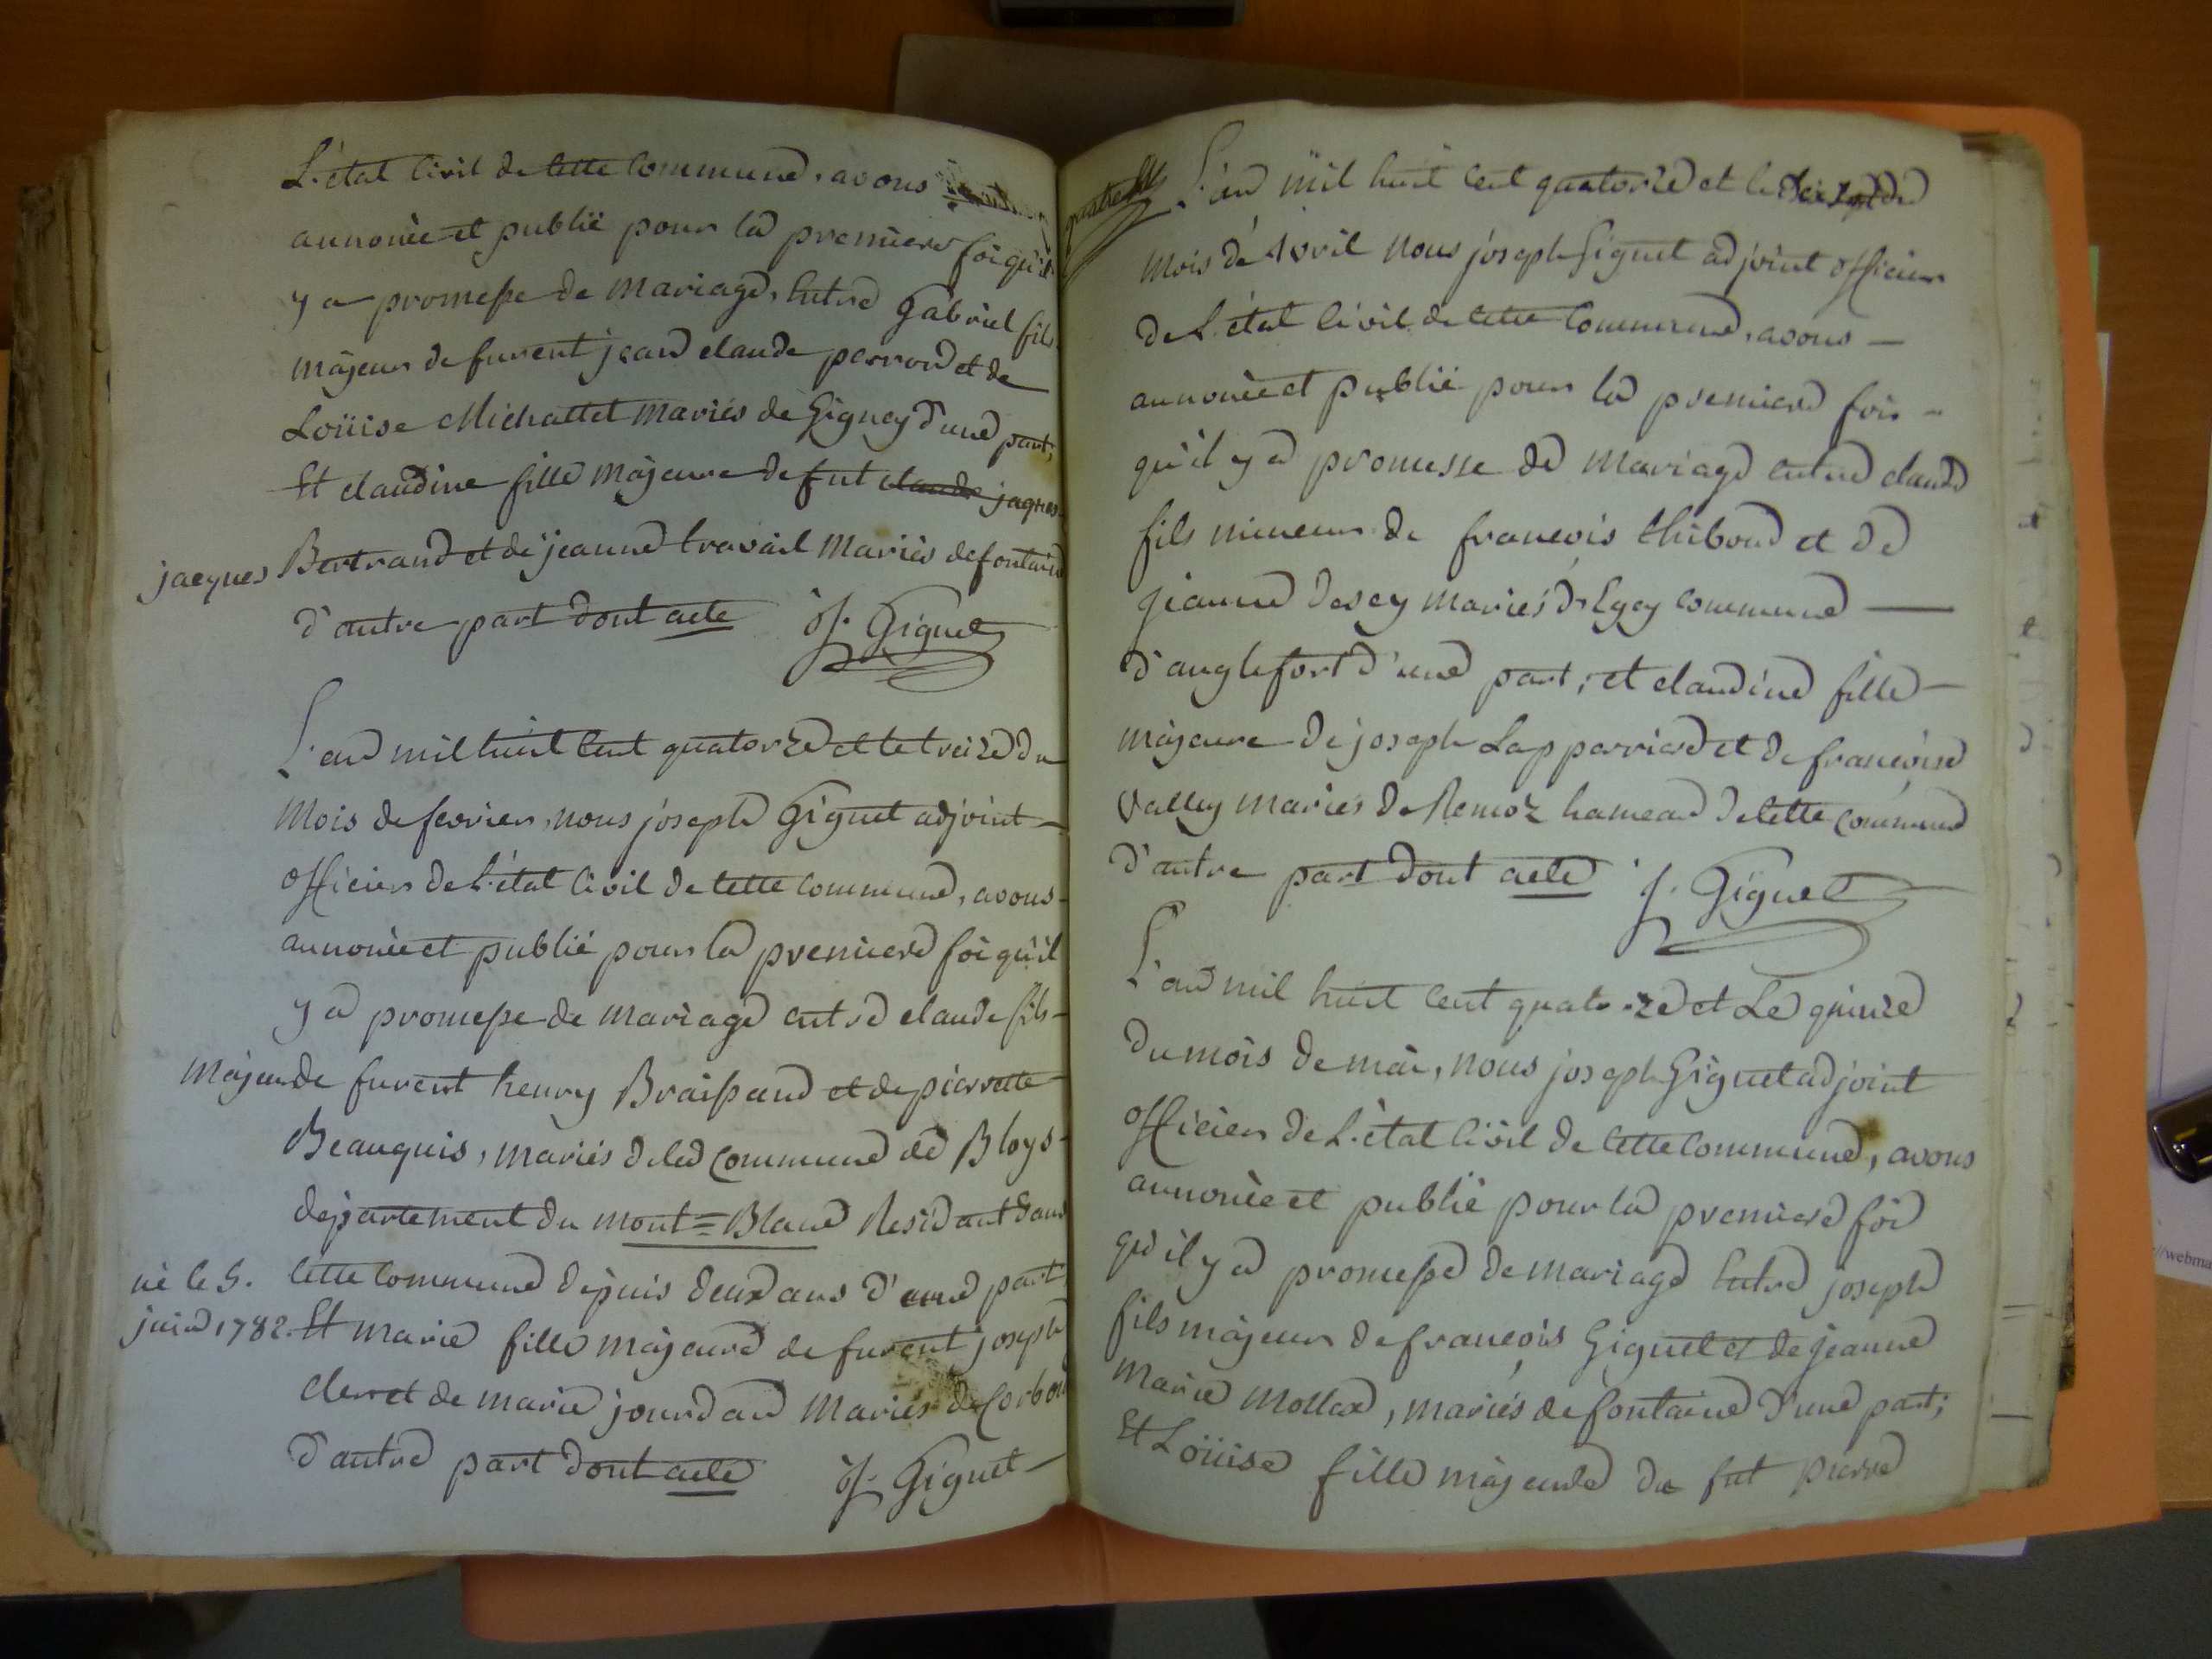 L'état Civil de Cette Commune, avons
annoncé et publié pour la premiere foi qu'il
y a promesse de mariage, Entre Gabriel fils
majeur de furent jean claude perron et de
Loüise Michattet mariés de Gigney d'une part,
Et claudine fille majeure de fut claude jaques
jacques Bertrand et de jeanne travail mariés de fontaine
d'autre part dont acte J. Giguet
L'an mil huit Cent quatorze et le treize du
mois de fevrier, nous joseph Giguet adjoint
officier de L'état Civil de Cette commune, avons
annoncé et publié pour la premiere foi qu'il
y a promesse de mariage entre claude fils
majeur de furent henry Braissand et de pierrette
Beauquis, mariés de la commune de Bloys
département du mont=Blanc Residant dans
né le 5. Cette Commune depuis deux ans d'une part
juin 1782. Et marie fille majeure de furent joseph
clerc et de marie jourdan mariés de Corbon
d'autre part dont acte J. Giguet
L'an mil huit Cent quatorze et le du
mois de Avril nous joseph Giguet adjoint officier
de L'état Civil de Cette Commune, avons
annoncé et publié pour la premiere fois
qu'il y a promesse de mariage entre claude
fils mineur de francois thiboud et de
jeanne desey mariés d'Eycy commune
d'anglefort d'une part, et claudine fille
majeure de joseph Lapperriere et de francoise
Valley mariés de Remoz hameau de Cette commune
d'autre part dont acte J. Giguet
L'an mil huit Cent quatorze et Le quinze
du mois de mai, nous joseph Giguet adjoint
officier de L'état Civil de Cette Commune, avons
annoncé et publié pour la premiere foi
qu'il y a promesse de mariage Entre joseph
fils majeur de francois Giguet et de jeanne
marie mollax, mariés de fontaine d'une part;
Et Loüise fille majeure de fut pierre